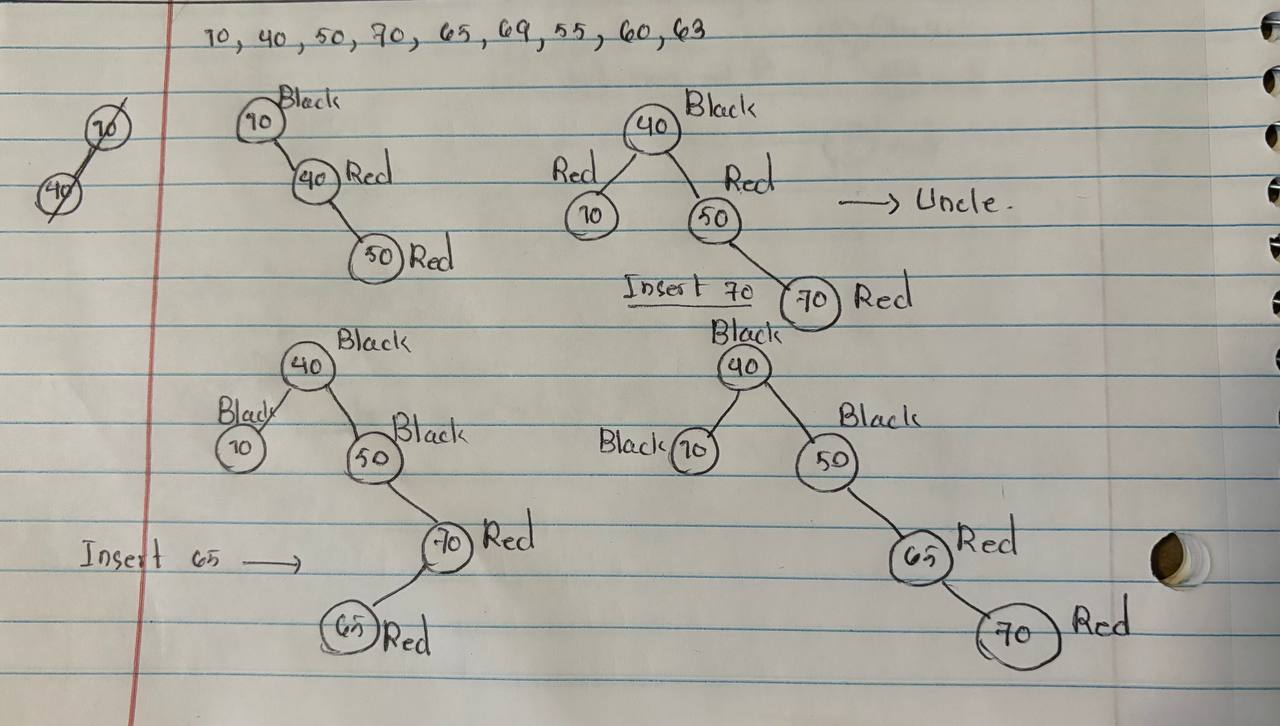 10, 40, 50, 70, 65, 69, 55, 60, 63
10
40
10 Black
40 Red
50 Red
40 Black
Red Red
10 50 → Uncle.
Insert 70 70 Red
40 Black
Black Black
10 50
70 Red
Insert 65 →
65 Red
Black
40
Black
Black 10 50
65 Red
70 Red